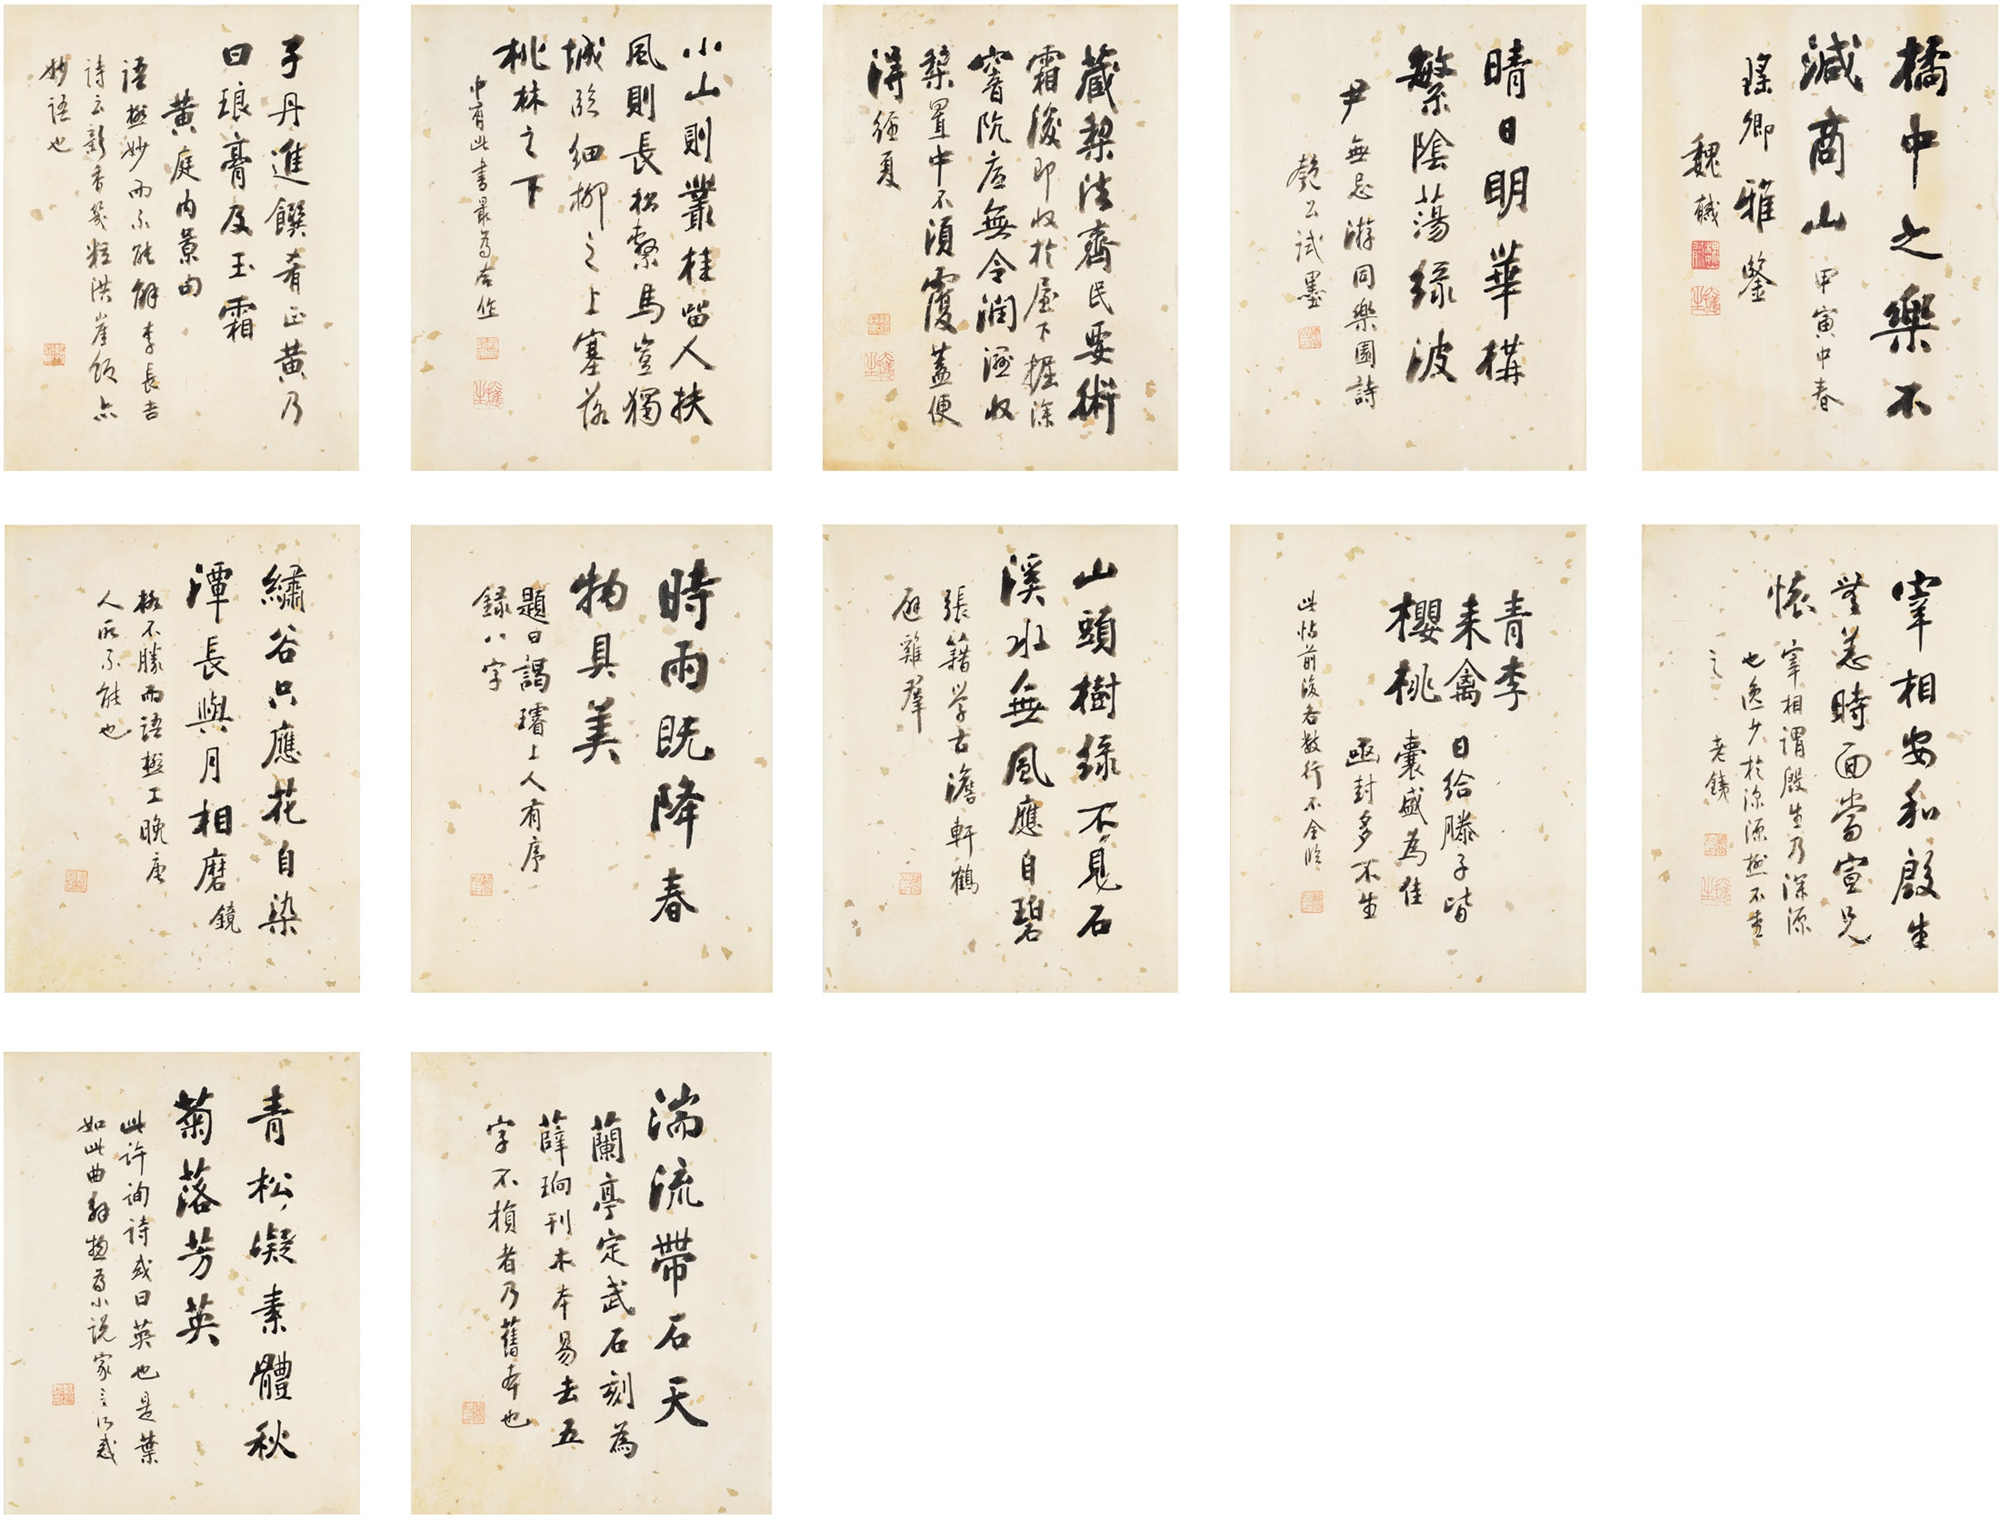 橘中之樂不
減商山 甲寅中春
瑤卿雅鑒
魏
晴日明華構
繁陰蕩綠波
尹無忌游同樂園詩
試墨
藏梨法齊民要術
霜後即收於屋下掘深
窖阬底無令潤溼收
梨置中不須覆蓋便
得經夏
小山則叢桂留人扶
風則長松繫馬豈獨
城臨細柳之上塞落
桃林之下
中有此書最為合作
子丹進饌肴正黃乃
曰琅膏及玉霜
黃庭內景句
語極妙而不能解李長吉
詩云新香幾粒洪崖飯亦
妙語也
宰相安和殷生
無恙時面當宣兄
懷 宰相謂殷生乃深源
也逸少於深源極不薄
之 老鐵
青李
來禽 日給滕子皆
櫻桃 囊盛為佳
函封多不生
此帖前後各數行不全臨
山頭樹綠不見石
溪水無風應自碧
張籍學古澹軒鶴
避雞群
時雨既降春
物具美
題曰謁璿上人有序
錄八字
繡谷只應花自染
潭長與月相磨
鏡
極不勝而語極工晚唐
人所不能也
湍流帶石天
蘭亭定武石刻為
薛珦刊木本易去五
字不損者乃舊本也
青松凝素體秋
菊落芳英
此許詢詩或曰英也是葉
如此曲解極為小說家言所惑